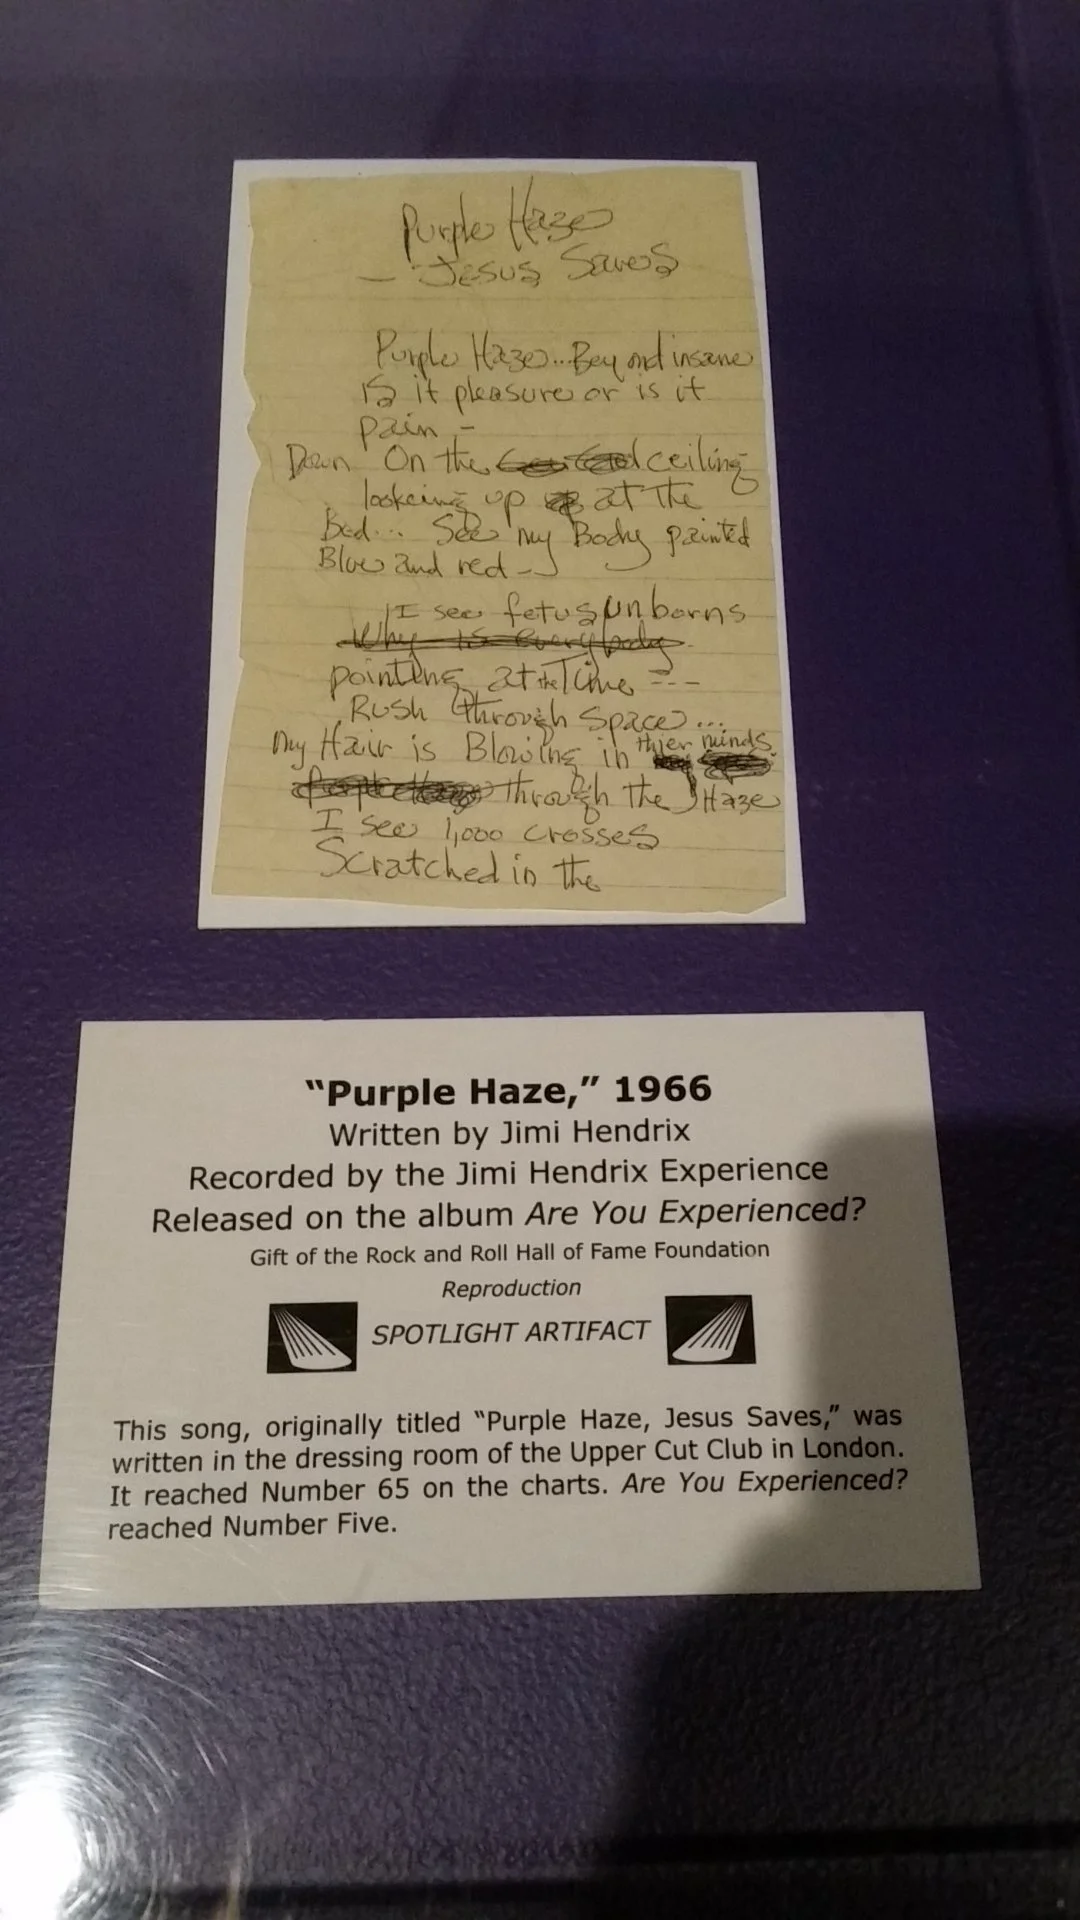 Purple Haze
- Jesus Saves
Purple Haze... Beyond insane
is it pleasure or is it
pain -
Down On the ceiling
lookeing up at the
Bed... See my Body painted
Blue and red -
I see fetus unborns
Why is everybody
pointing at the Time ---
Rush through space...
my Hair is Blowing in thier minds
through the Haze
I see 1,000 crosses
Scratched in the
“Purple Haze,” 1966
Written by Jimi Hendrix
Recorded by the Jimi Hendrix Experience
Released on the album Are You Experienced?
Gift of the Rock and Roll Hall of Fame Foundation
Reproduction
SPOTLIGHT ARTIFACT
This song, originally titled “Purple Haze, Jesus Saves,” was
written in the dressing room of the Upper Cut Club in London.
It reached Number 65 on the charts. Are You Experienced?
reached Number Five.